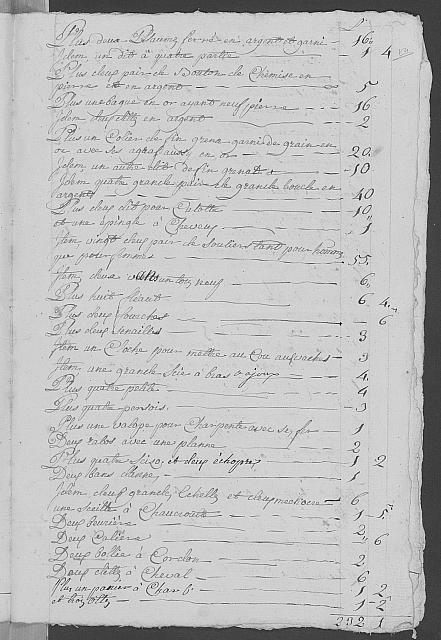 Plus deux Pseaumes ferré en argent et garni — 16
Idem un dit à quatre partie — 1 4
Plus deux pair de Bouton de Chemise en
pierre et en argent — 5
Plus une bague en or ayant neuf pierre — 16
Idem en argent — 2
Plus un Colier de fin grena garni de grain en
or avec ses agraf aussy en or — 20
Idem un autre dit de fin grenat — 10
Idem quatre grande pair de grande boucle en
argent — 40
Plus deux dit pour Culotte — 10
et une épingle à cheveux — 1
Item vingt deux pair de Souliers tant pour homme
que pour femmes — 55
Item deux un neuf — 6
Plus huit fléaut — 6 4
Plus deux fourches — 6
Plus deux tenailles — 3
Item un Cloche pour mettre au Cou aux vaches — 3
Item une grande Scie à bras — 4
Plus quatre petite — 4
Plus quatre persois — 3
Plus une valope pour Charpente avec se fer — 1
Deux rabos avec une planne — 2
Plus quatre Seiso et deux échopres — 1 2
Deux bans danne — 1
Idem deux grande Echelle et deux mediocre — 6
une Seille à Chaucroute — 1 5
Deux
Deux Saliére — 2 6
Deux à Cordon — 2
Deux à Cheval — 6
Plus un panier à Charb — 1 2
et trois — 1 2
292 1